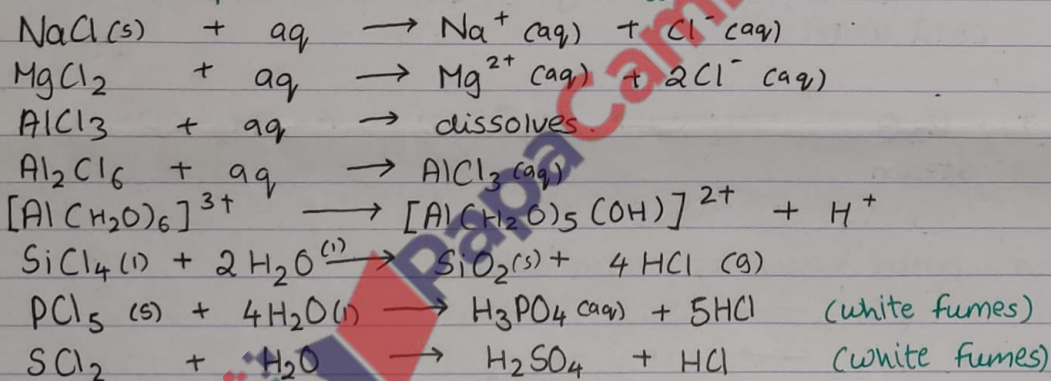 NaCl(s) + aq → Na⁺ (aq) + Cl⁻ (aq)
MgCl₂ + aq → Mg²⁺ (aq) + 2Cl⁻ (aq)
AlCl₃ + aq → dissolves.
Al₂Cl₆ + aq → AlCl₃ (aq)
[Al(H₂O)₆]³⁺ → [Al(H₂O)₅(OH)]²⁺ + H⁺
SiCl₄(l) + 2H₂O(l) → SiO₂(s) + 4HCl (g)
PCl₅ (s) + 4H₂O(l) → H₃PO₄ (aq) + 5HCl (white fumes)
SCl₂ + H₂O → H₂SO₄ + HCl (white fumes)
PapaCam